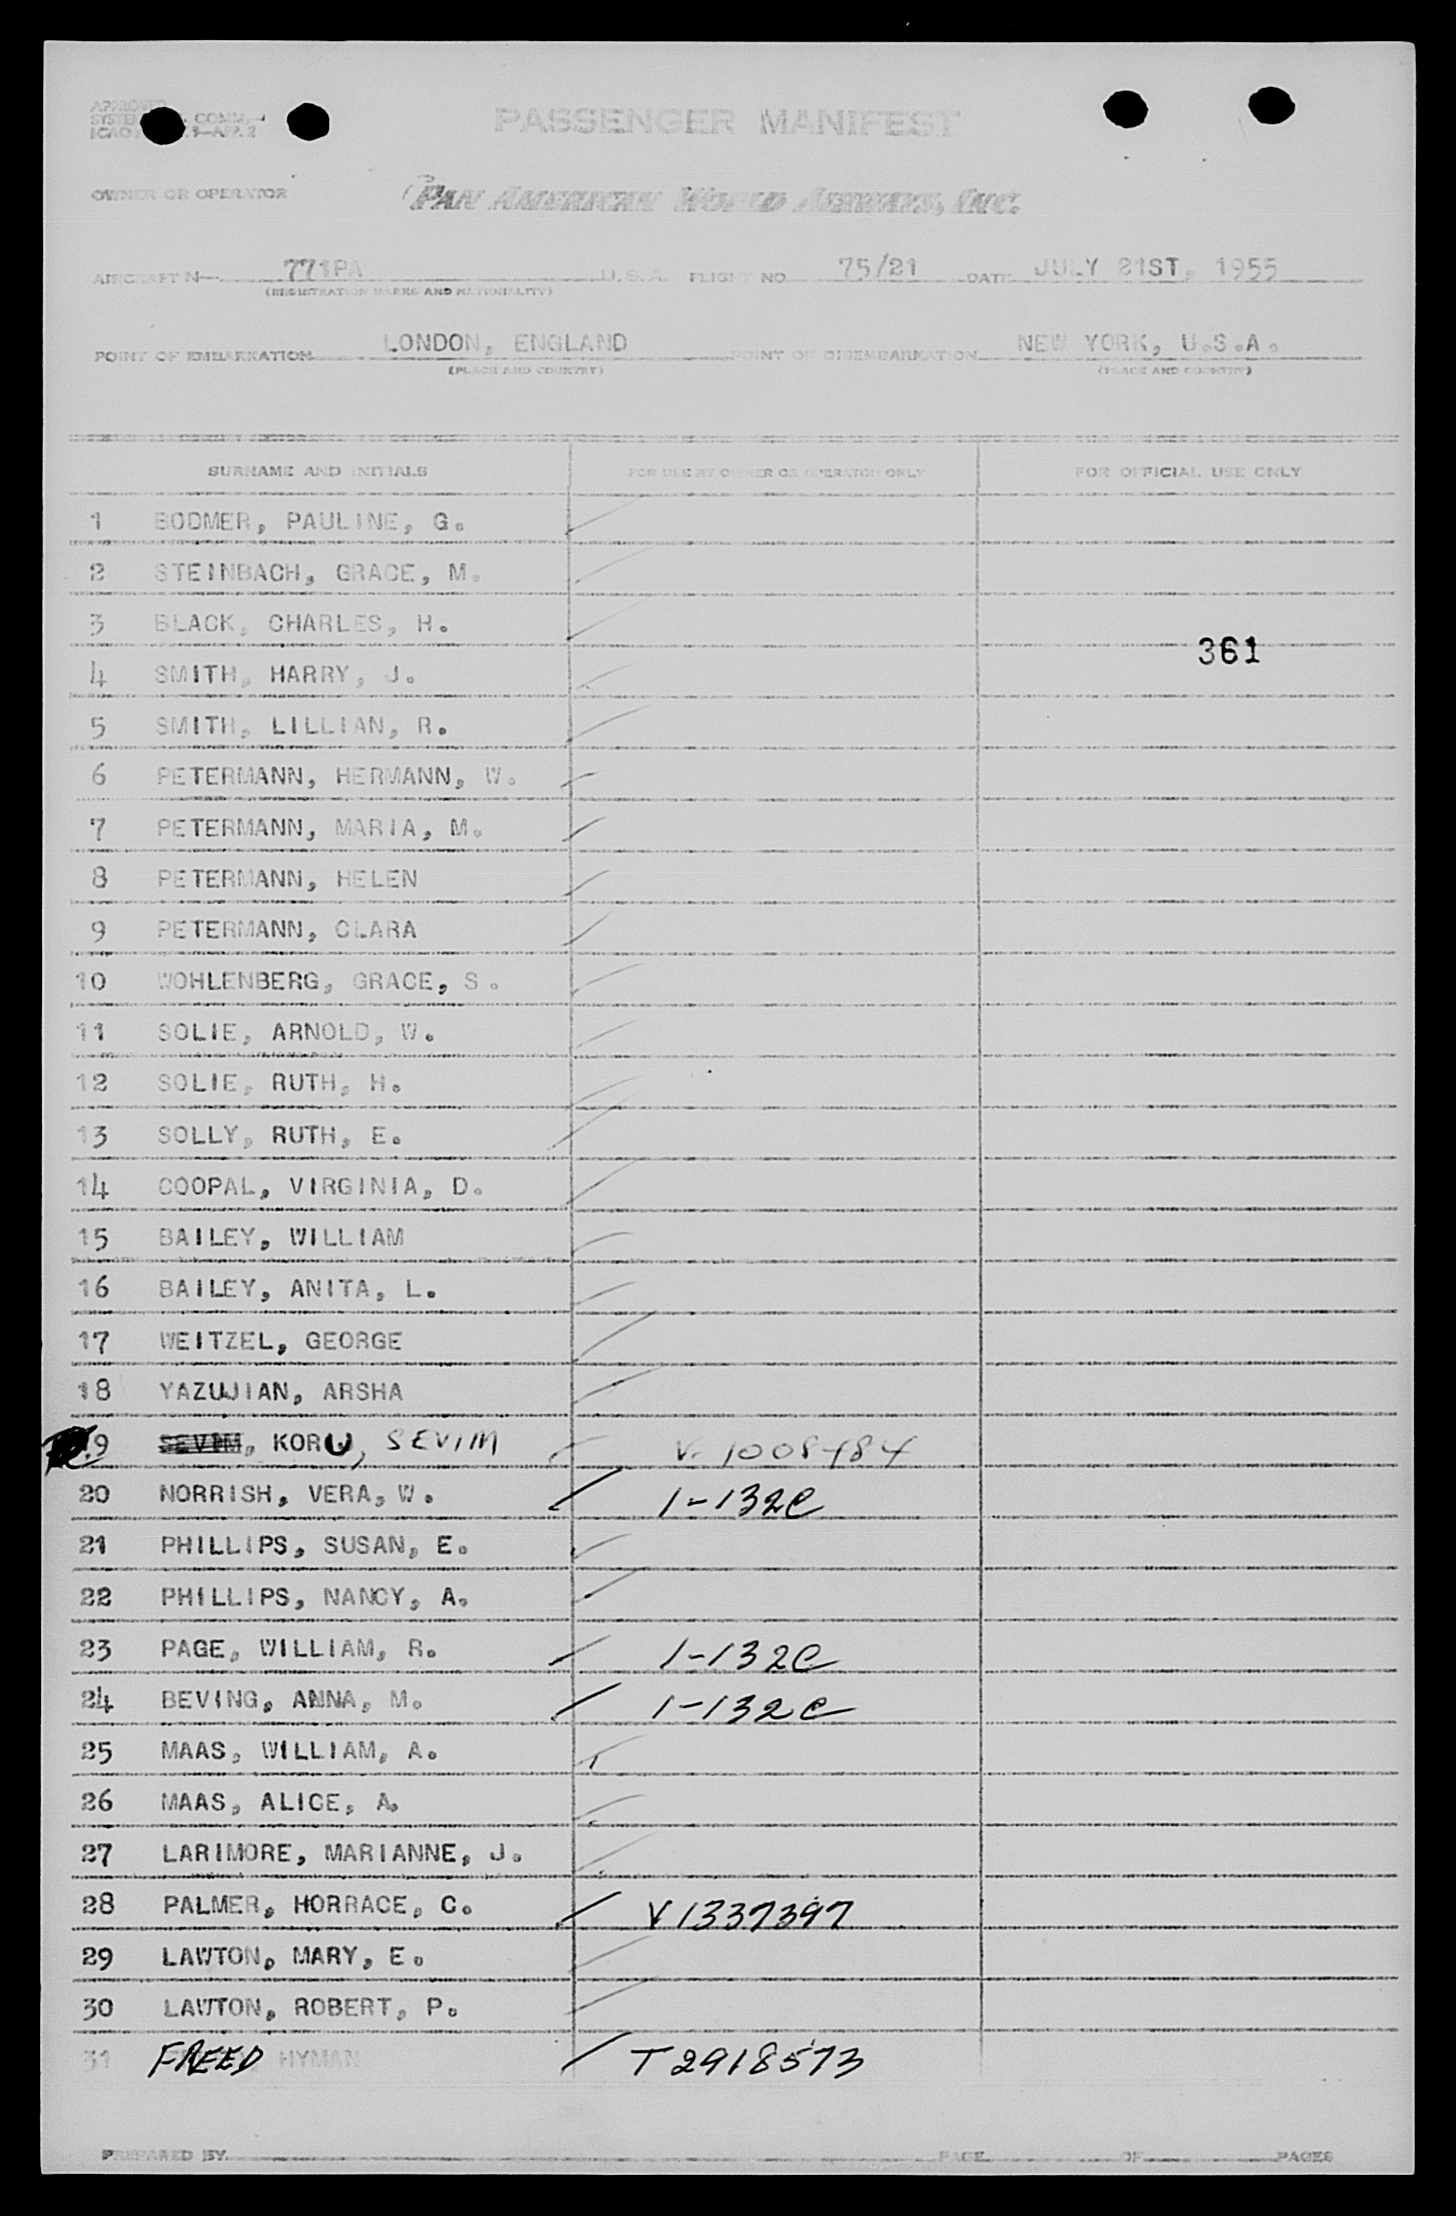 PASSENGER MANIFEST
OWNER OR OPERATOR PAN AMERICAN WORLD AIRWAYS, INC.
AIRCRAFT N— 771PA U.S.A. FLIGHT NO. 75/21 DATE JULY 21ST, 1955
(REGISTRATION MARKS AND NATIONALITY)
POINT OF EMBARKATION LONDON, ENGLAND POINT OF DISEMBARKATION NEW YORK, U.S.A.
(PLACE AND COUNTRY) (PLACE AND COUNTRY)
SURNAME AND INITIALS FOR USE BY OWNER OR OPERATOR ONLY FOR OFFICIAL USE ONLY
1 BODMER, PAULINE, G.
2 STEINBACH, GRACE, M.
3 BLACK, CHARLES, H.
361
4 SMITH, HARRY, J.
5 SMITH, LILLIAN, R.
6 PETERMANN, HERMANN, W.
7 PETERMANN, MARIA, M.
8 PETERMANN, HELEN
9 PETERMANN, CLARA
10 WOHLENBERG, GRACE, S.
11 SOLIE, ARNOLD, W.
12 SOLIE, RUTH, H.
13 SOLLY, RUTH, E.
14 COOPAL, VIRGINIA, D.
15 BAILEY, WILLIAM
16 BAILEY, ANITA, L.
17 WEITZEL, GEORGE
18 YAZUJIAN, ARSHA
9 SEVIM, KORU, SEVIM V. 1008484
20 NORRISH, VERA, W. 1-132C
21 PHILLIPS, SUSAN, E.
22 PHILLIPS, NANCY, A.
23 PAGE, WILLIAM, R. 1-132C
24 BEVING, ANNA, M. 1-132C
25 MAAS, WILLIAM, A.
26 MAAS, ALICE, A.
27 LARIMORE, MARIANNE, J.
28 PALMER, HORRACE, C. V1337397
29 LAWTON, MARY, E.
30 LAWTON, ROBERT, P.
31 FREED HYMAN T2918573
PREPARED BY PAGE OF PAGES